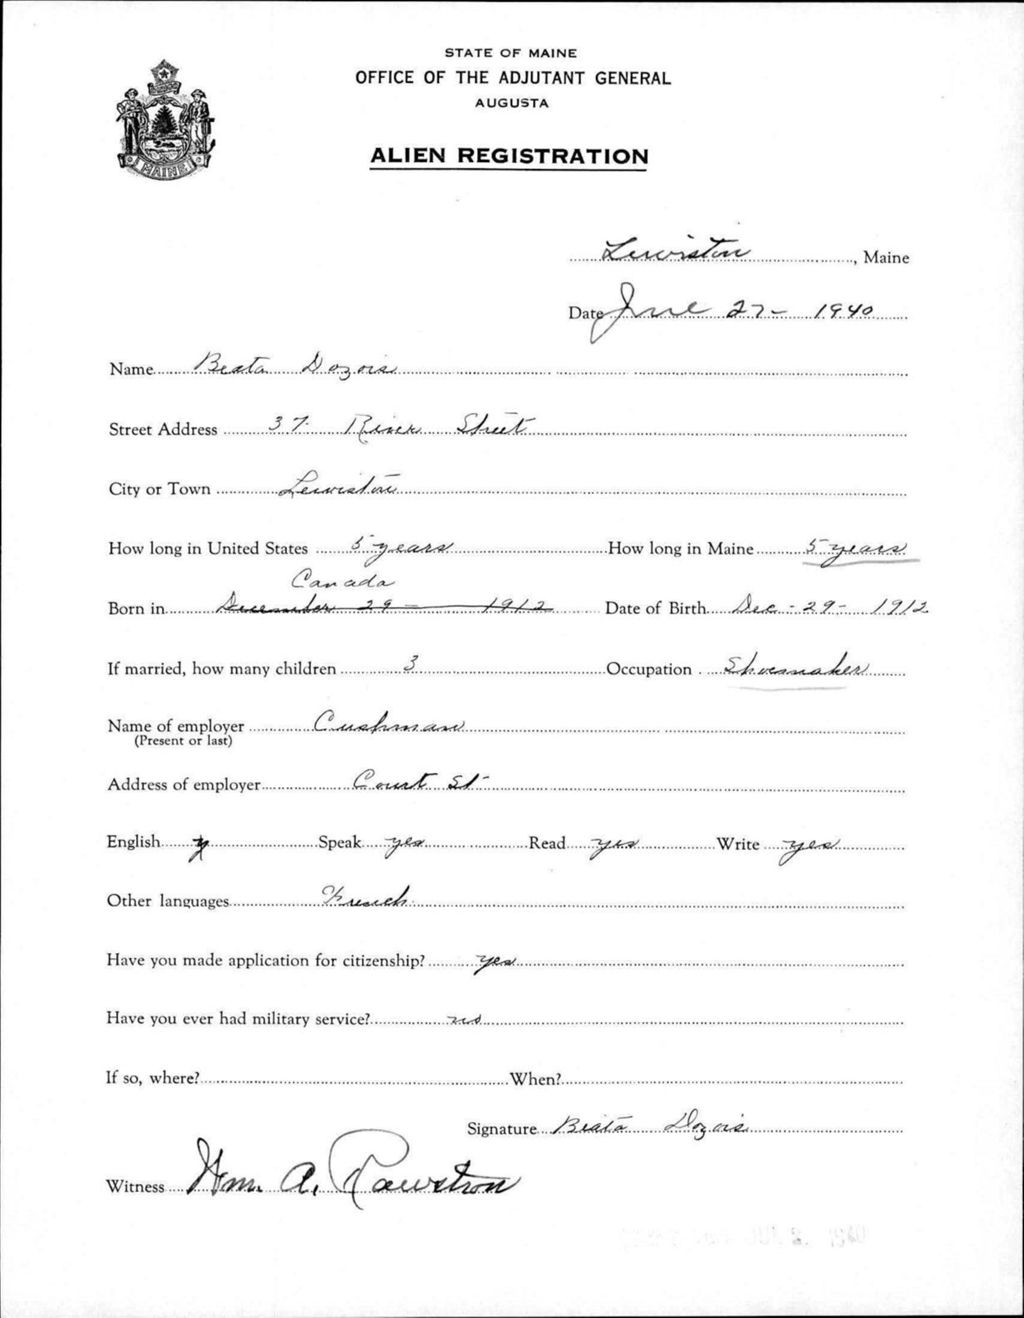 STATE OF MAINE
OFFICE OF THE ADJUTANT GENERAL
AUGUSTA
ALIEN REGISTRATION
MAINE
Lewiston, Maine
Date June 27- 1940
Name Beata Dozois
Street Address 37 River Street
City or Town Lewiston
How long in United States 5 years How long in Maine 5 years
Canada
Born in December 29 - 1912 Date of Birth Dec - 29 - 1912
If married, how many children 3 Occupation Shoemaker
Name of employer Cushman
(Present or last)
Address of employer Court St
English y Speak yes Read yes Write yes
Other languages French
Have you made application for citizenship? yes
Have you ever had military service? no
If so, where? When?
Signature Beata Dozois
Witness Wm. A. Rawstron